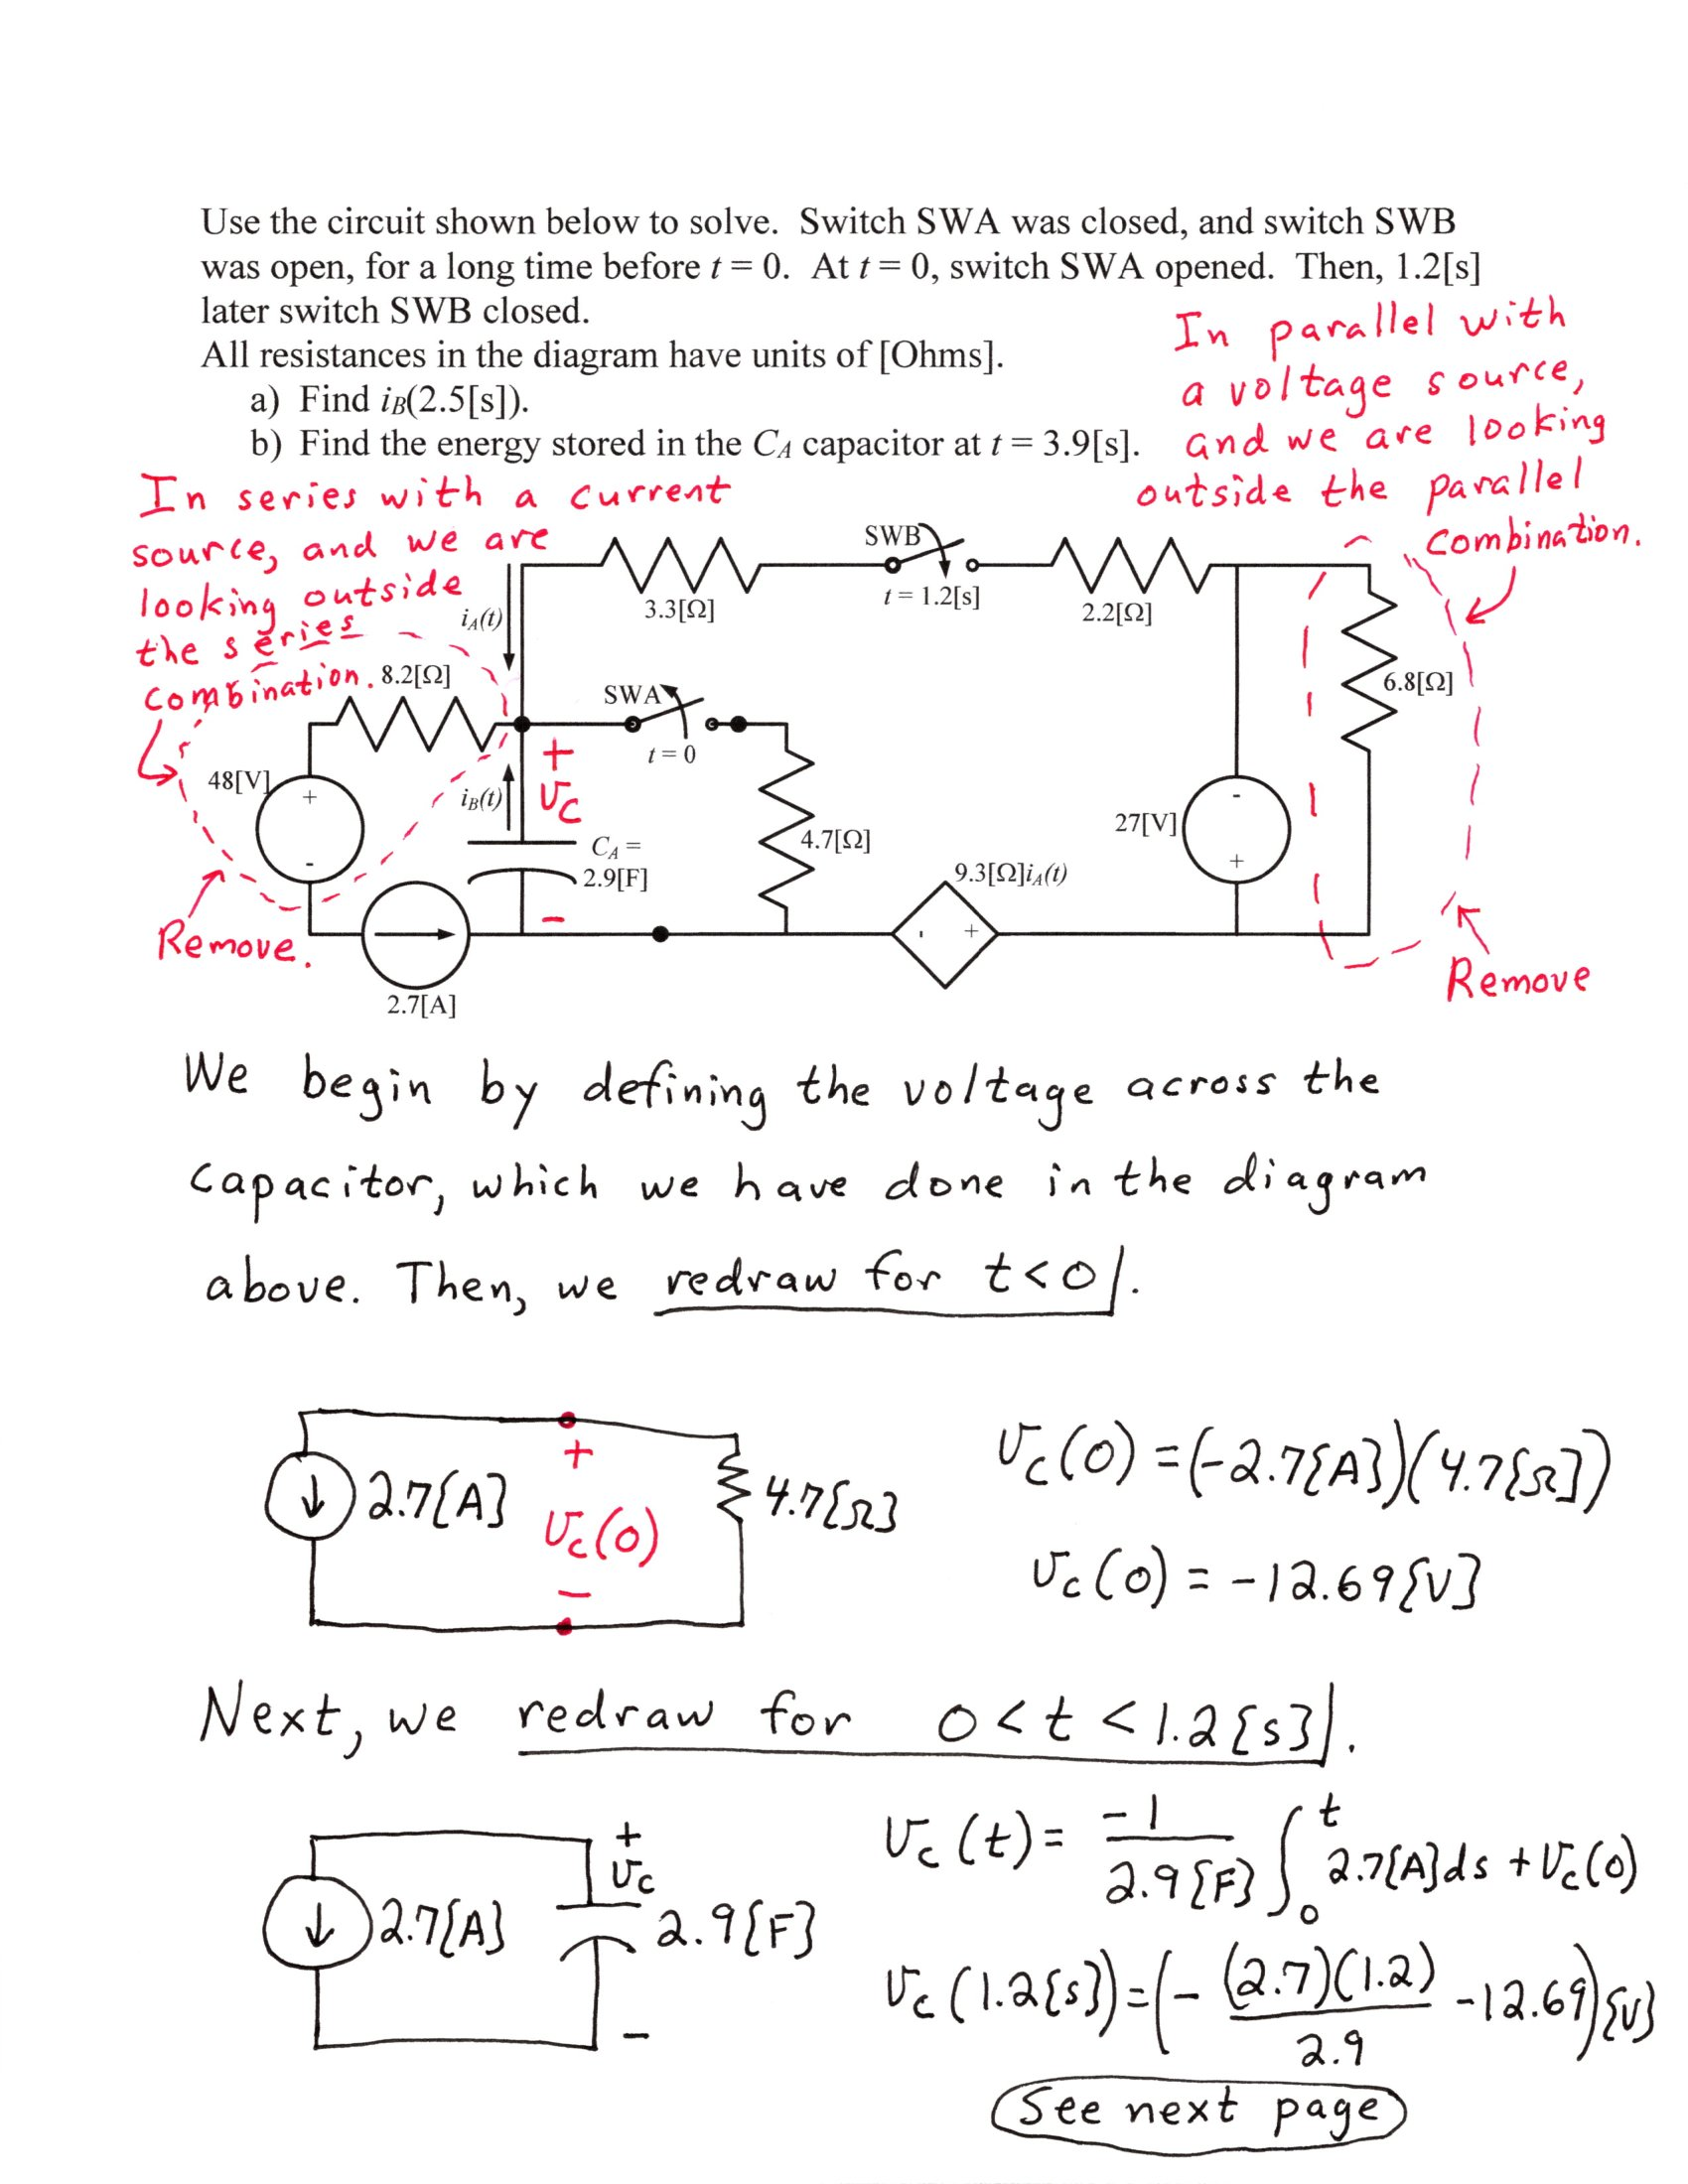 Use the circuit shown below to solve.  Switch SWA was closed, and switch SWB
was open, for a long time before t = 0.  At t = 0, switch SWA opened.  Then, 1.2[s]
later switch SWB closed.
All resistances in the diagram have units of [Ohms].
a) Find iB(2.5[s]).
b) Find the energy stored in the CA capacitor at t = 3.9[s].
In parallel with
a voltage source,
and we are looking
outside the parallel
combination.
In series with a current
source, and we are
looking outside
the series
combination.
SWB
t = 1.2[s]
3.3[Ω]
2.2[Ω]
iA(t)
8.2[Ω]
6.8[Ω]
SWA
t = 0
48[V]
+
-
iB(t)
+
vC
-
CA =
2.9[F]
4.7[Ω]
27[V]
-
+
9.3[Ω]iA(t)
- +
Remove.
Remove
2.7[A]
We begin by defining the voltage across the
capacitor, which we have done in the diagram
above. Then, we redraw for t<0.
2.7[A]
+
vC(0)
-
4.7[Ω]
vC(0) = (-2.7[A])(4.7[Ω])
vC(0) = -12.69[V]
Next, we redraw for 0<t<1.2[s].
2.7[A]
+
vC
-
2.9[F]
vC(t) = -1/2.9[F] ∫0^t 2.7[A]ds + vC(0)
vC(1.2[s]) = (- (2.7)(1.2)/2.9 -12.69)[V]
See next page